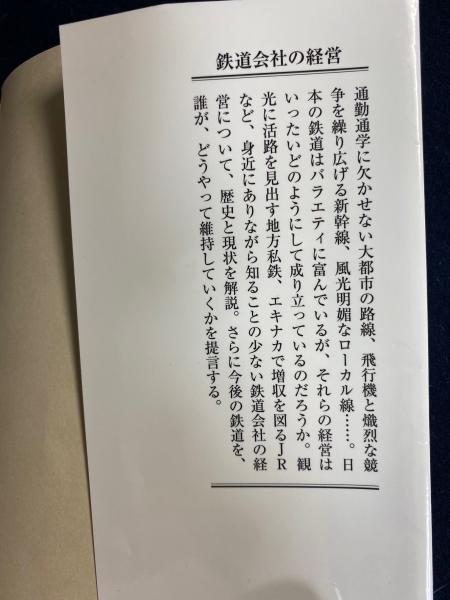 鉄道会社の経営
通勤通学に欠かせない大都市の路線、飛行機と熾烈な競
争を繰り広げる新幹線、風光明媚なローカル線……。日
本の鉄道はバラエティに富んでいるが、それらの経営は
いったいどのようにして成り立っているのだろうか。観
光に活路を見出す地方私鉄、エキナカで増収を図るJR
など、身近にありながら知ることの少ない鉄道会社の経
営について、歴史と現状を解説。さらに今後の鉄道を、
誰が、どうやって維持していくかを提言する。